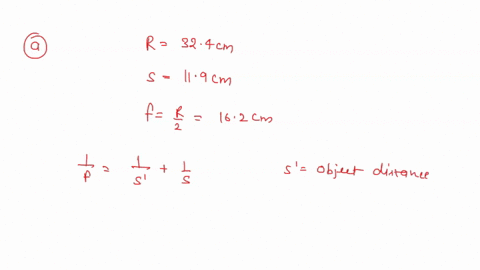 a
R = 32.4 cm
s = 11.9 cm
f = R/2 = 16.2 cm
1/f = 1/s' + 1/s
s' = object distance